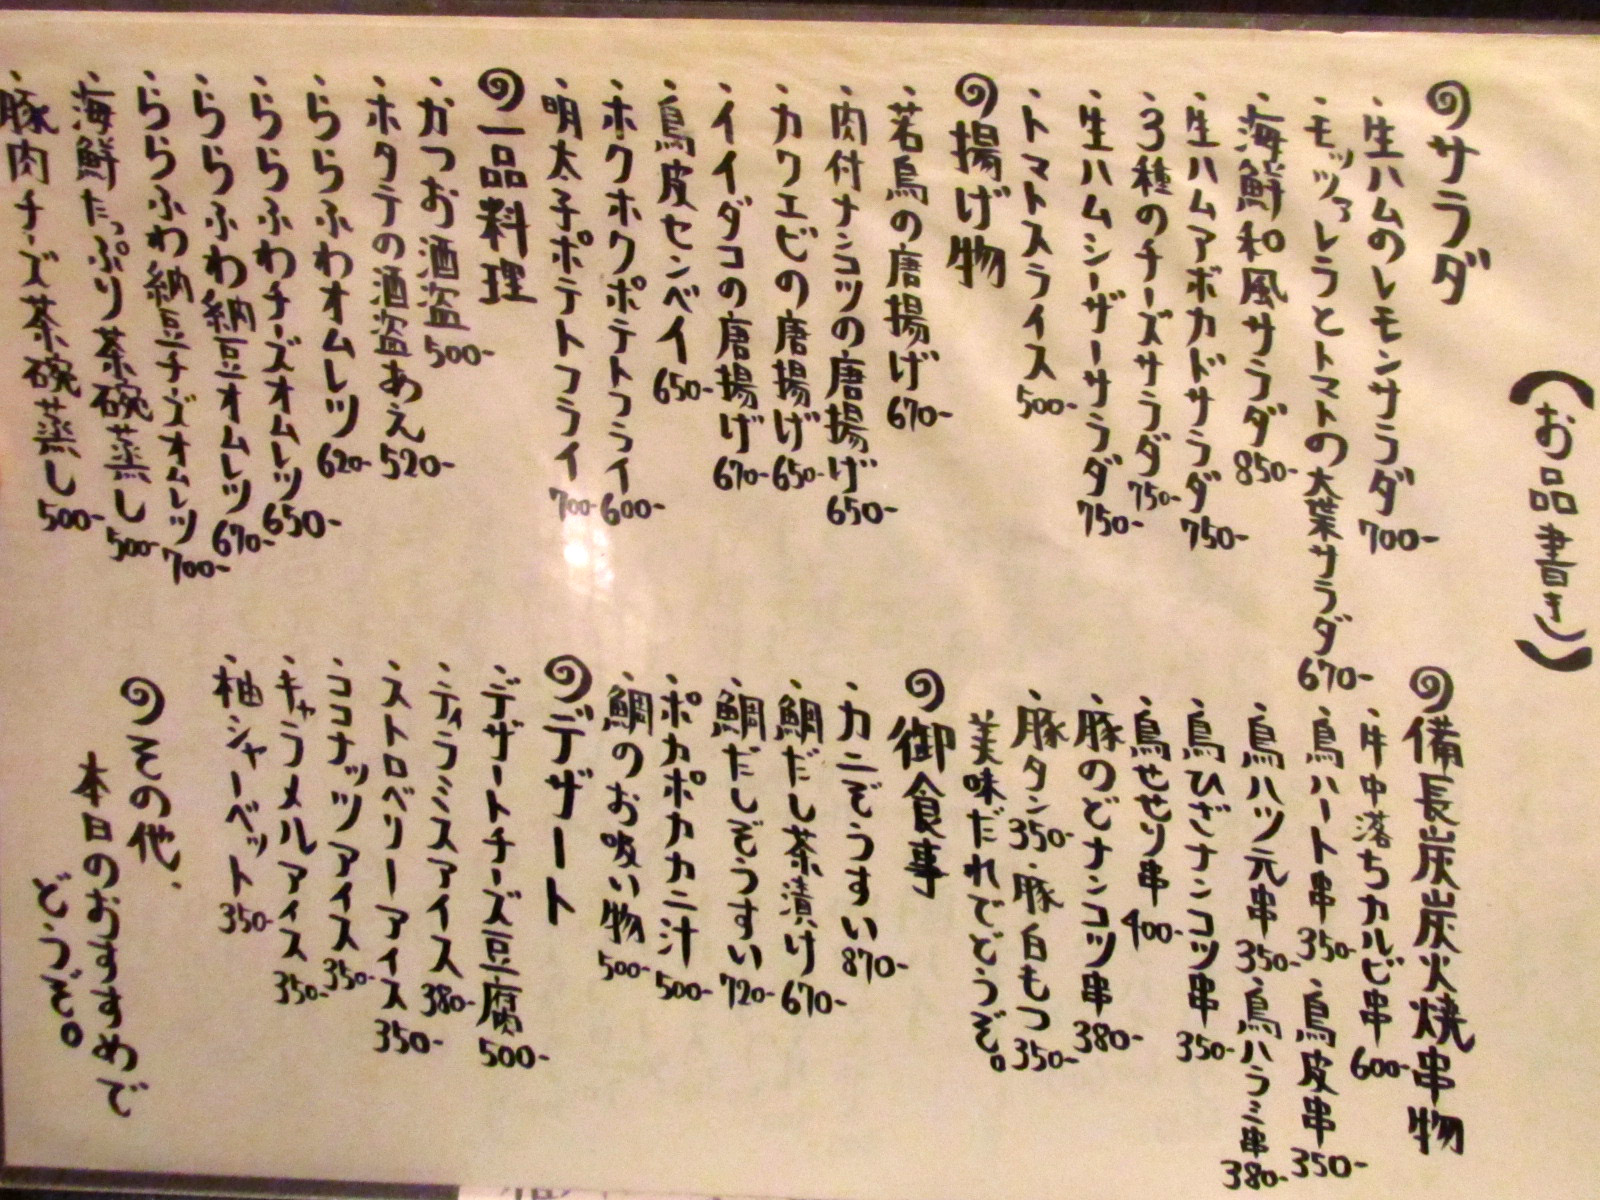 (お品書き)
サラダ
・生ハムのレモンサラダ 700-
・モッツァレラとトマトの大葉サラダ 670-
・海鮮和風サラダ 850-
・生ハムアボカドサラダ 750-
・3種のチーズサラダ 750-
・生ハムシーザーサラダ 750-
・トマトスライス 500-
揚げ物
・若鳥の唐揚げ 670-
・肉付ナンコツの唐揚げ 650-
・カワエビの唐揚げ 650-
・イイダコの唐揚げ 670-
・鳥皮センベイ 650-
・ホクホクポテトフライ 600-
・明太子ポテトフライ 700-
一品料理
・かつお酒盗 500-
・ホタテの酒盗あえ 520-
・ららふわオムレツ 620-
・ららふわチーズオムレツ 650-
・ららふわ納豆オムレツ 670-
・ららふわ納豆チーズオムレツ 700-
・海鮮たっぷり茶碗蒸し 500-
・豚肉チーズ茶碗蒸し 500-
備長炭炭火焼串物
・牛中落ちカルビ串 600-
・鳥ハート串 350- ・鳥皮串 350-
・鳥ハツ元串 350- ・鳥ハラミ串 380-
・鳥ひざナンコツ串 350-
・鳥せせり串 400-
・豚のどナンコツ串 380-
・豚タン 350- ・豚白もつ 350-
美味だれでどうぞ。
御食事
・カニぞうすい 870-
・鯛だし茶漬け 670-
・鯛だしぞうすい 720-
・ポカポカカニ汁 500-
・鯛のお吸い物 500-
デザート
・デザートチーズ豆腐 500-
・ティラミスアイス 380-
・ストロベリーアイス 350-
・ココナッツアイス 350-
・キャラメルアイス 350-
・柚シャーベット 350-
その他、
本日のおすすめで
どうぞ。